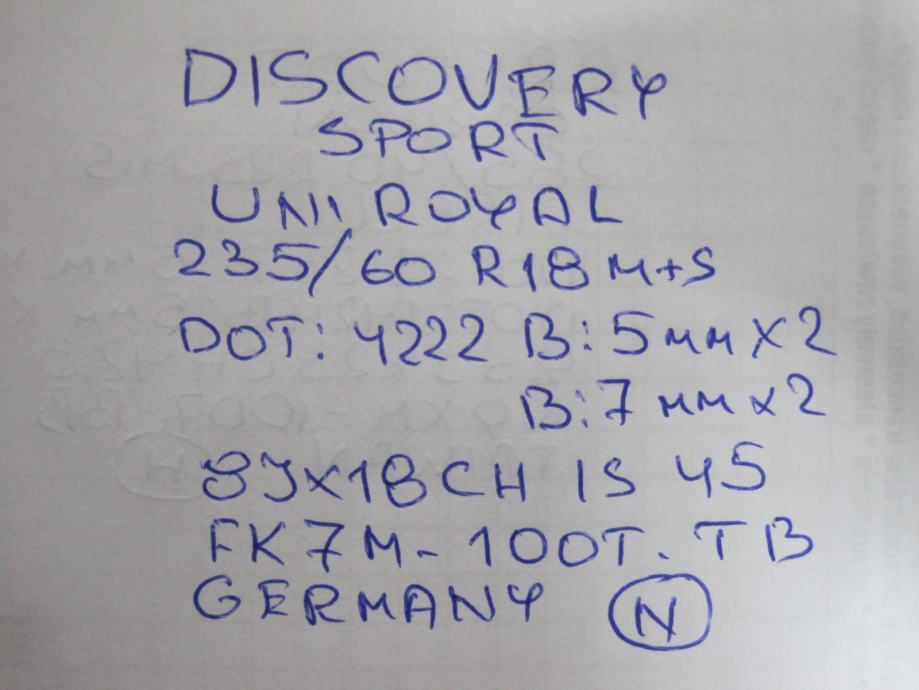 DISCOVERY
SPORT
UNIROYAL
235/60 R18 M+S
DOT: 4222 B: 5 mm X 2
B: 7 mm x 2
8Jx18 CH IS 45
FK7M-1007-TB
GERMANY N